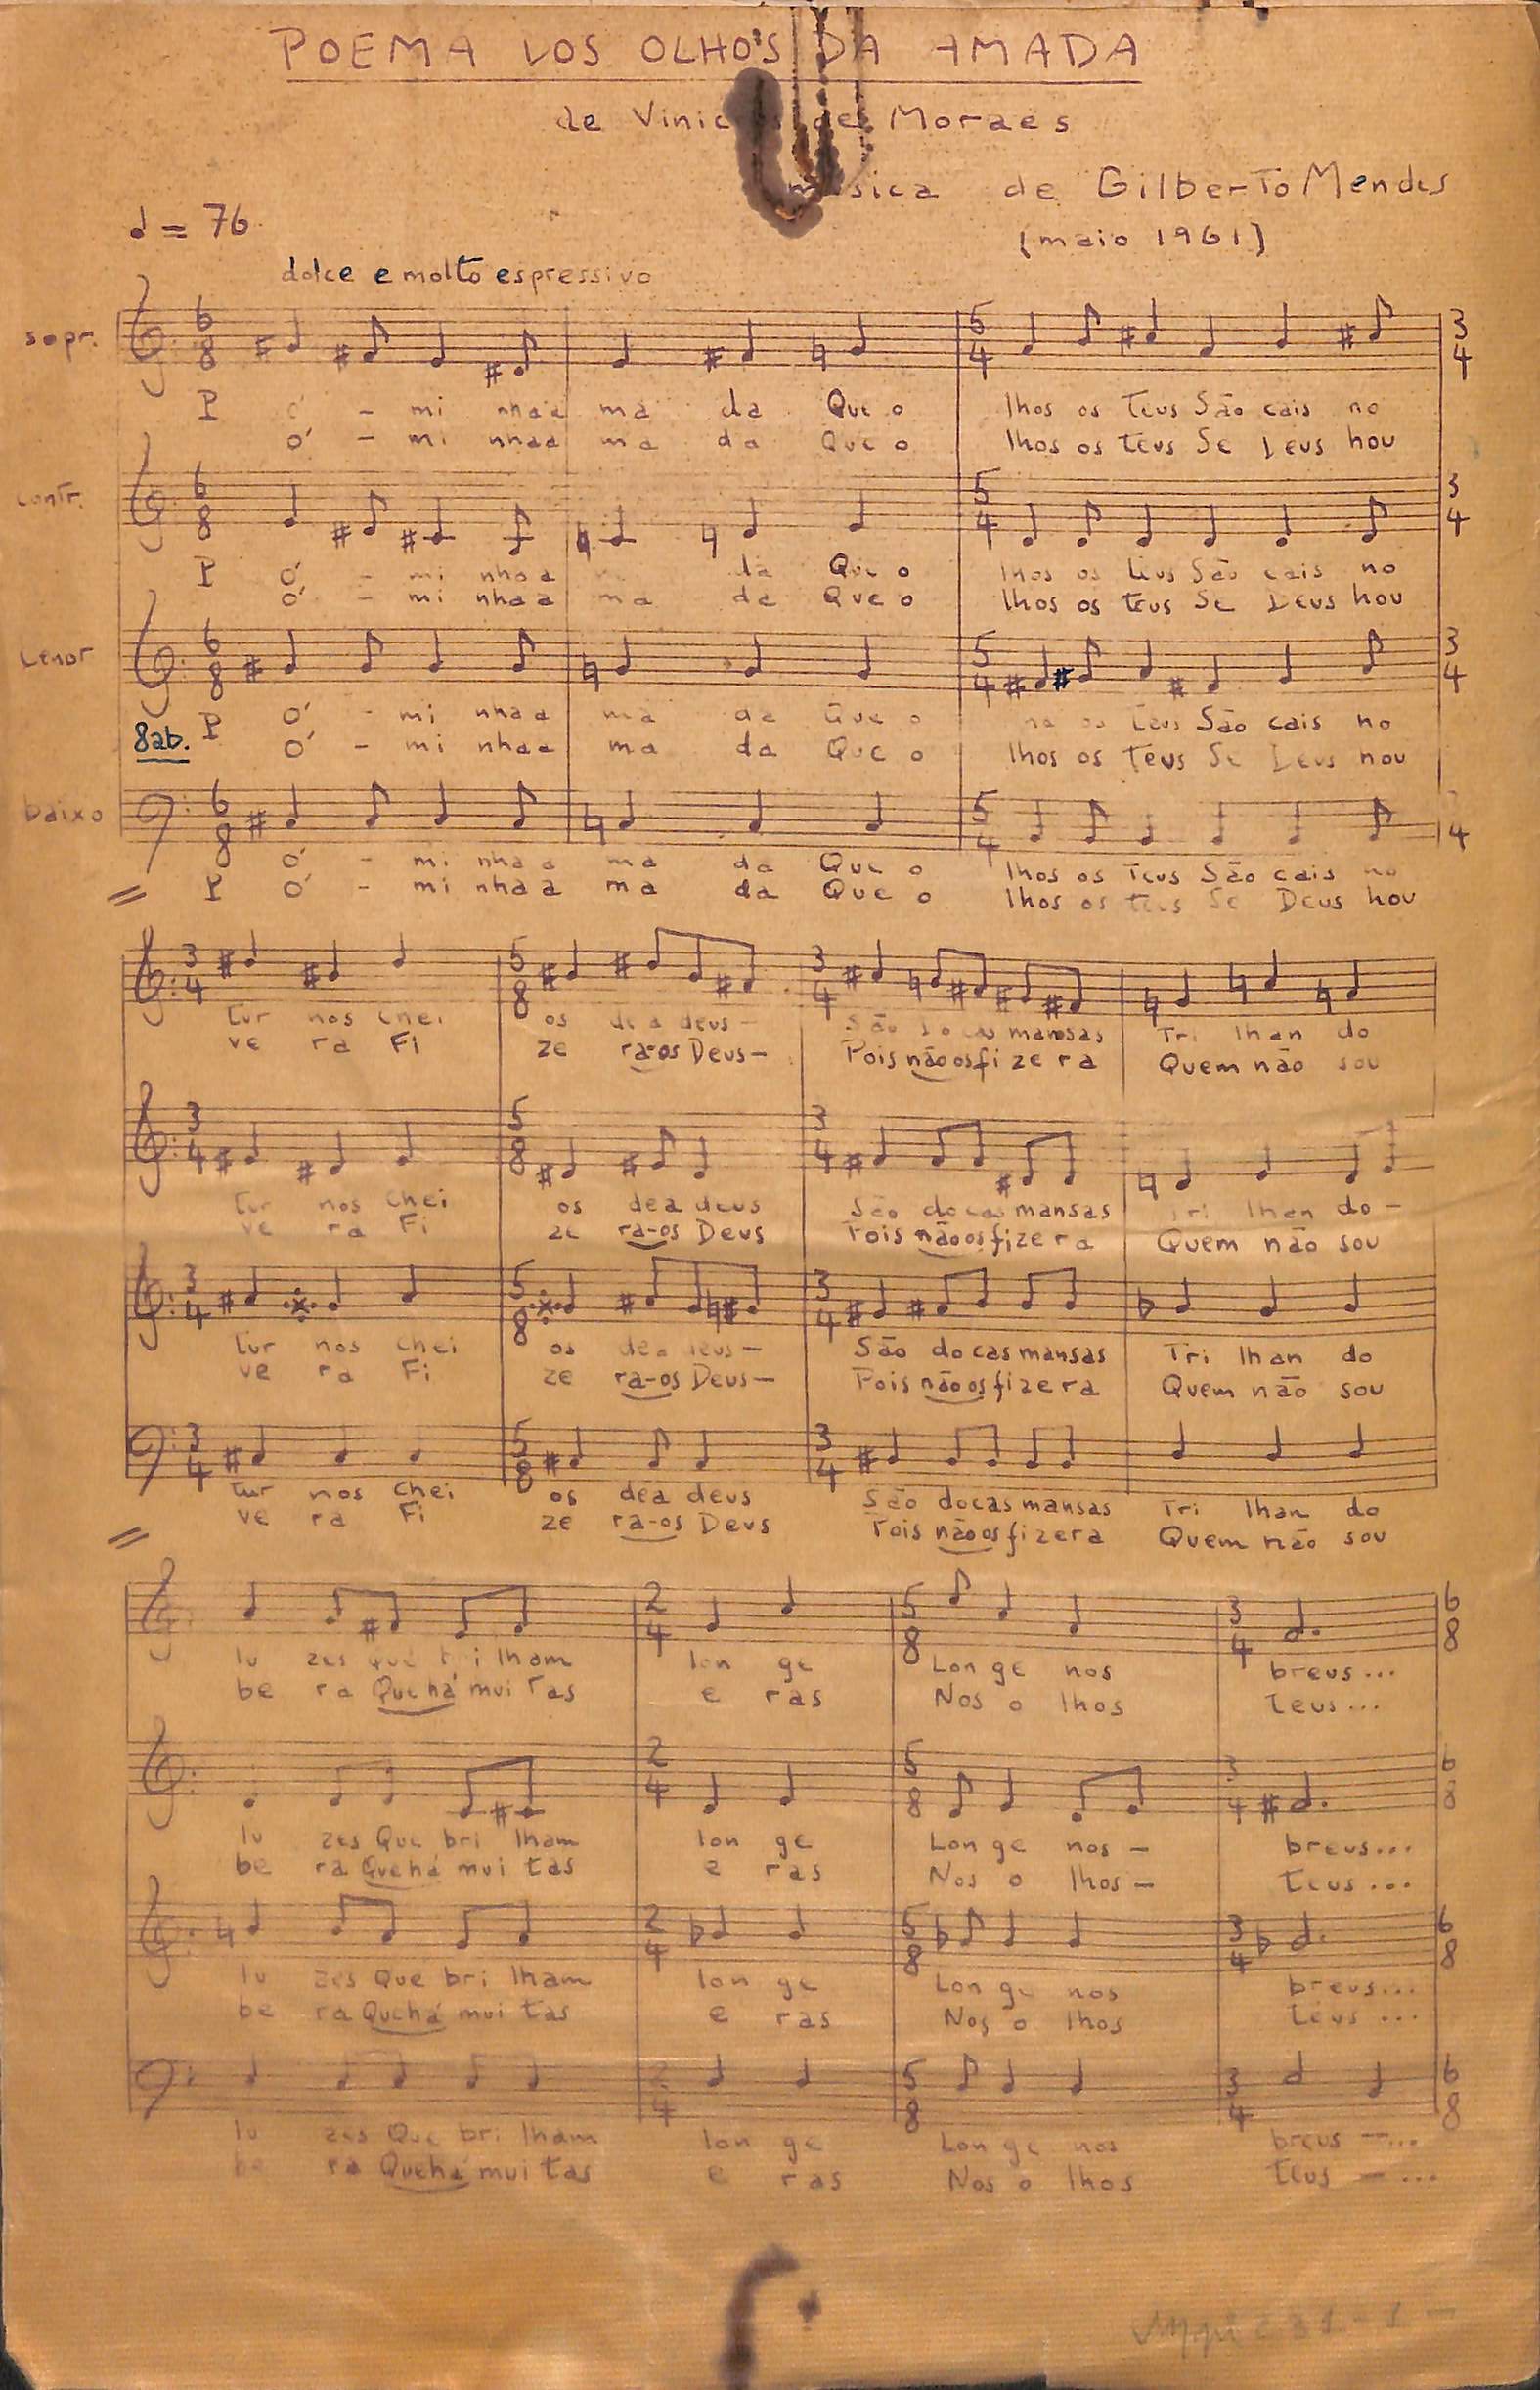 POEMA DOS OLHOS DA AMADA
de Moraes
música de Gilberto Mendes
♩ = 76
(maio 1961)
dolce e molto espressivo
sopr.
6 8 5 4 3 4
P Ó - mi nhaa ma da Que o lhos os teus São cais no
Ó - mi nhaa ma da Que o lhos os teus Se Deus hou
contr.
6 8 5 4 3 4
P Ó - mi nhaa da Que o lhos os teus São cais no
Ó - mi nhaa ma da Que o lhos os teus Se Deus hou
tenor
6 8 5 4 3 4
8ab.
P Ó - mi nhaa ma da Que o os teus São cais no
Ó - mi nhaa ma da Que o lhos os teus Se Deus hou
baixo
6 8 5 4 3 4
Ó - mi nhaa ma da Que o lhos os teus São cais no
P Ó - mi nhaa ma da Que o lhos os teus Se Deus hou
3 4 5 8 3 4
tur nos chei os dea deus - São docas mansas Tri lhan do
ve ra Fi ze ra-os Deus - Pois não os fi ze ra Quem não sou
3 4 5 8 3 4
tur nos chei os dea deus São docas mansas Tri lhan do -
ve ra Fi ze ra-os Deus Pois não os fi ze ra Quem não sou
3 4 5 8 3 4
tur nos chei os dea deus - São do cas mansas Tri lhan do
ve ra Fi ze ra-os Deus - Pois não os fi ze ra Quem não sou
3 4 5 8 3 4
tur nos chei os dea deus São docas mansas Tri lhan do
ve ra Fi ze ra-os Deus Pois não os fi ze ra Quem não sou
2 4 5 8 3 4 6 8
lu zes que bri lham lon ge Lon ge nos breus...
be ra Que há mui tas e ras Nos o lhos teus...
2 4 5 8 3 4 6 8
lu zes Que bri lham lon ge Lon ge nos - breus...
be ra Que há mui tas e ras Nos o lhos - teus...
2 4 5 8 3 4 6 8
lu zes Que bri lham lon ge Lon ge nos breus...
be ra Que há mui tas e ras Nos o lhos teus...
2 4 5 8 3 4 6 8
lu zes Que bri lham lon ge Lon ge nos breus - ...
be ra Que há mui tas e ras Nos o lhos teus - ...